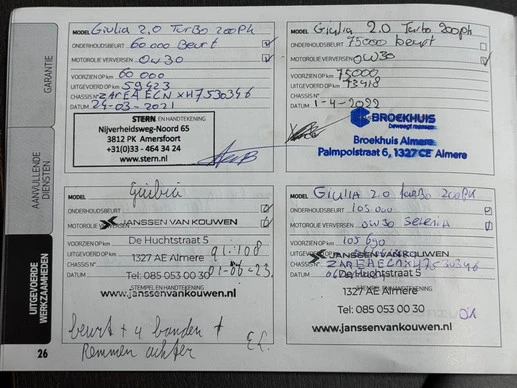 GARANTIE
AANVULLENDE
DIENSTEN
UITGEVOERDE
WERKZAAMHEDEN
26
MODEL Giulia 2.0 Turbo 200pk
ONDERHOUDSBEURT 60000 Beurt
MOTOROLIE VERVERSEN 0W30
VOORZIEN OP km 60 000
UITGEVOERD OP km 59423
CHASSIS N° ZAREAECNXH7530346
DATUM 24-03-2021
STERN EN HANDTEKENING
Nijverheidsweg-Noord 65
3812 PK Amersfoort
+31(0)33 - 464 34 24
www.stern.nl
MODEL Giulia 2.0 Turbo 200pk
ONDERHOUDSBEURT 75000 beurt
MOTOROLIE VERVERSEN 0W30
VOORZIEN OP km 75000
UITGEVOERD OP km 73418
CHASSIS N°
DATUM 1-4-2022
BROEKHUIS
beweegt mensen
Broekhuis Almere
Palmpolstraat 6, 1327 CE Almere
MODEL
ONDERHOUDSBEURT
MOTOROLIE
JANSSEN VAN KOUWEN
VOORZIEN OP km
De Huchtstraat 5
UITGEVOERD OP km 91.108
CHASSIS N° 1327 AE Almere
DATUM 01-06-23
Tel: 085 053 00 30
STEMPEL EN HANDTEKENING
www.janssenvankouwen.nl
beurt + 4 banden +
Remmen achter
MODEL GIULIA 2.0 turbo 200pk
ONDERHOUDSBEURT 105 000
MOTOROLIE VERVERSEN 0W30 SELENIA
VOORZIEN OP km 105 690
UITGEVOERD OP km
JANSSEN VAN KOUWEN
CHASSIS N° ZAREAECNXH7530346
DATUM
De Huchtstraat 5
1327 AE Almere
Tel: 085 053 00 30
www.janssenvankouwen.nl